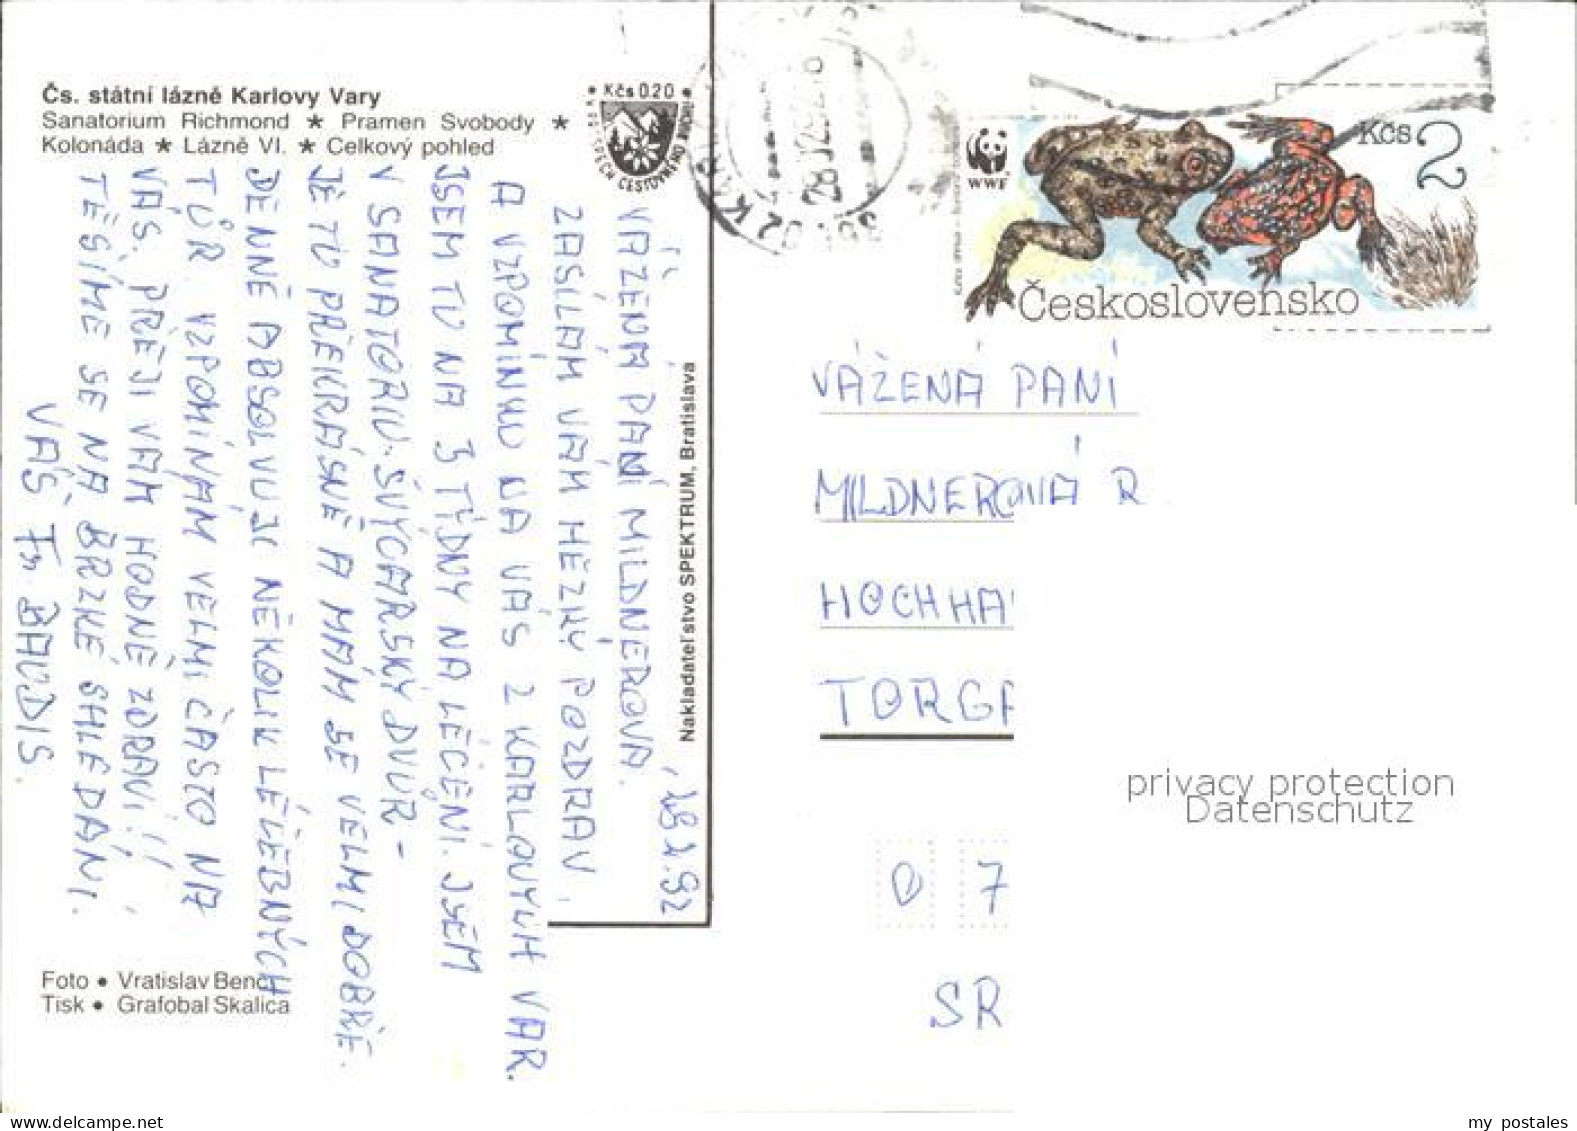 Čs. státní lázně Karlovy Vary
Sanatorium Richmond ★ Pramen Svobody ★
Kolonáda ★ Lázně VI. ★ Celkový pohled
• Kčs 0.20 •
VE PROSPĚCH CESTOVNÉHO RUCHU
WWF
Kčs 2
Československo
28.1.92
VÁŽENÁ PANÍ MILDNEROVÁ.
ZASÍLÁM VÁM HEZKÝ POZDRAV
A VZPOMÍNKU NA VÁS Z KARLOVÝCH VAR.
JSEM TU NA 3 TÝDNY NA LÉČENÍ. JSEM
V SANATORIU. ŠVÝCARSKÝ DVŮR -
JE TU PŘEKRÁSNĚ A MÁM SE VELMI DOBŘE.
DENNĚ ABSOLVUJI NĚKOLIK LÉČEBNÝCH
TŮR. VZPOMÍNÁM VELMI ČASTO NA
VÁS. PŘEJI VÁM HODNĚ ZDRAVÍ!!
TĚŠÍME SE NA BRZKÉ SHLEDÁNÍ.
VÁŠ Fr. BAUDIS.
Nakladateľstvo SPEKTRUM, Bratislava
Foto • Vratislav Benci
Tisk • Grafobal Skalica
VÁŽENÁ PANÍ
MILDNEROVÁ R
HOCHHA
TORGA
privacy protection
Datenschutz
0 7
SR
www.delcampe.net
my postales